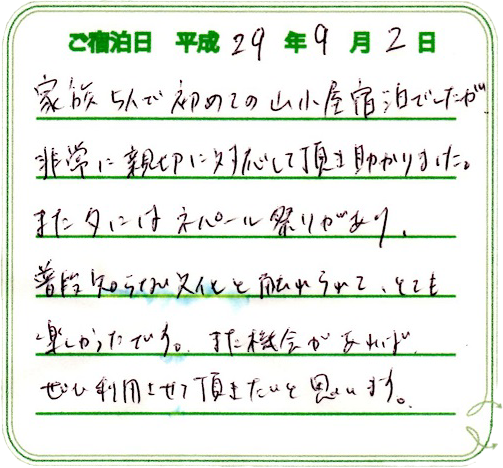 ご宿泊日 平成 29 年 9 月 2 日
家族5人で初めての山小屋宿泊でしたが
非常に親切に対応して頂き助かりました。
また夕にはネパール祭りがあり、
普段知らない文化と触れられて、とても
楽しかったです。また機会があれば、
ぜひ利用させて頂きたいと思います。